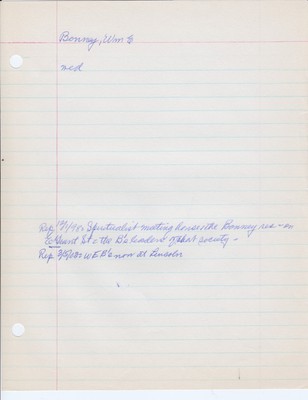 Bonney, Wm E
med
Rep 12/1/98 Spiritualist meeting house the Bonney res - on
E Grant St c the B's leaders of that society -
Rep 3/5/08 W E B's now at Lincoln